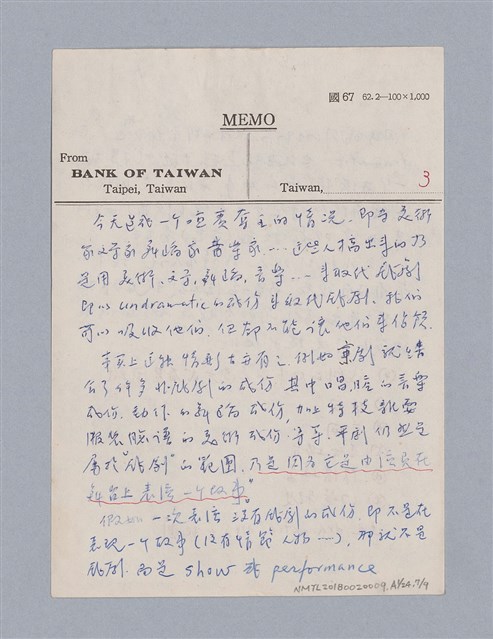 國 67 62.2—100×1.000
MEMO
From
BANK OF TAIWAN
Taipei, Taiwan
Taiwan,
3
今天造成一个喧賓奪主的情況，即是美術
家文学家舞蹈家音樂家……这些人搞出來的乃
是用美術、文学、舞蹈、音樂……來取代戲劇
即以 undramatic 的成份來取代戲劇。我們
可以吸收他們，但却不能讓他們來佔領。
事实上这种情形古亦有之，例如京劇就結
合了许多非戲劇的成份，其中唱腔的音樂
成份，動作的舞蹈成份，加上特技雜耍
服裝臉譜的美術成份等等。平劇仍然是
屬於“戲劇”的範圍，乃是因为它是由演員在
舞台上表演一个故事。
假如一次表演没有戲劇的成份，即不是在
表現一个故事（没有情節人物……），那就不是
戲劇，而是 show 或 performance
NMTL20180020009, A1/24.7/9